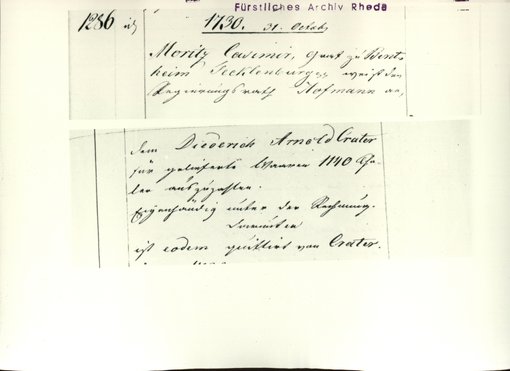 Fürstliches Archiv Rheda
1286
1730. 31. Octob.
Moritz Casimir, Graf zu Bent-
heim Tecklenburg weist den
Regierungsrath Hofmann an,
dem Diederich Arnold Crater
für gelieferte Waaren 1140 Tha-
ler auszuzahlen.
Eigenhändig unter der Rechnung.
Darunter
ist eodem quittirt von Crater.